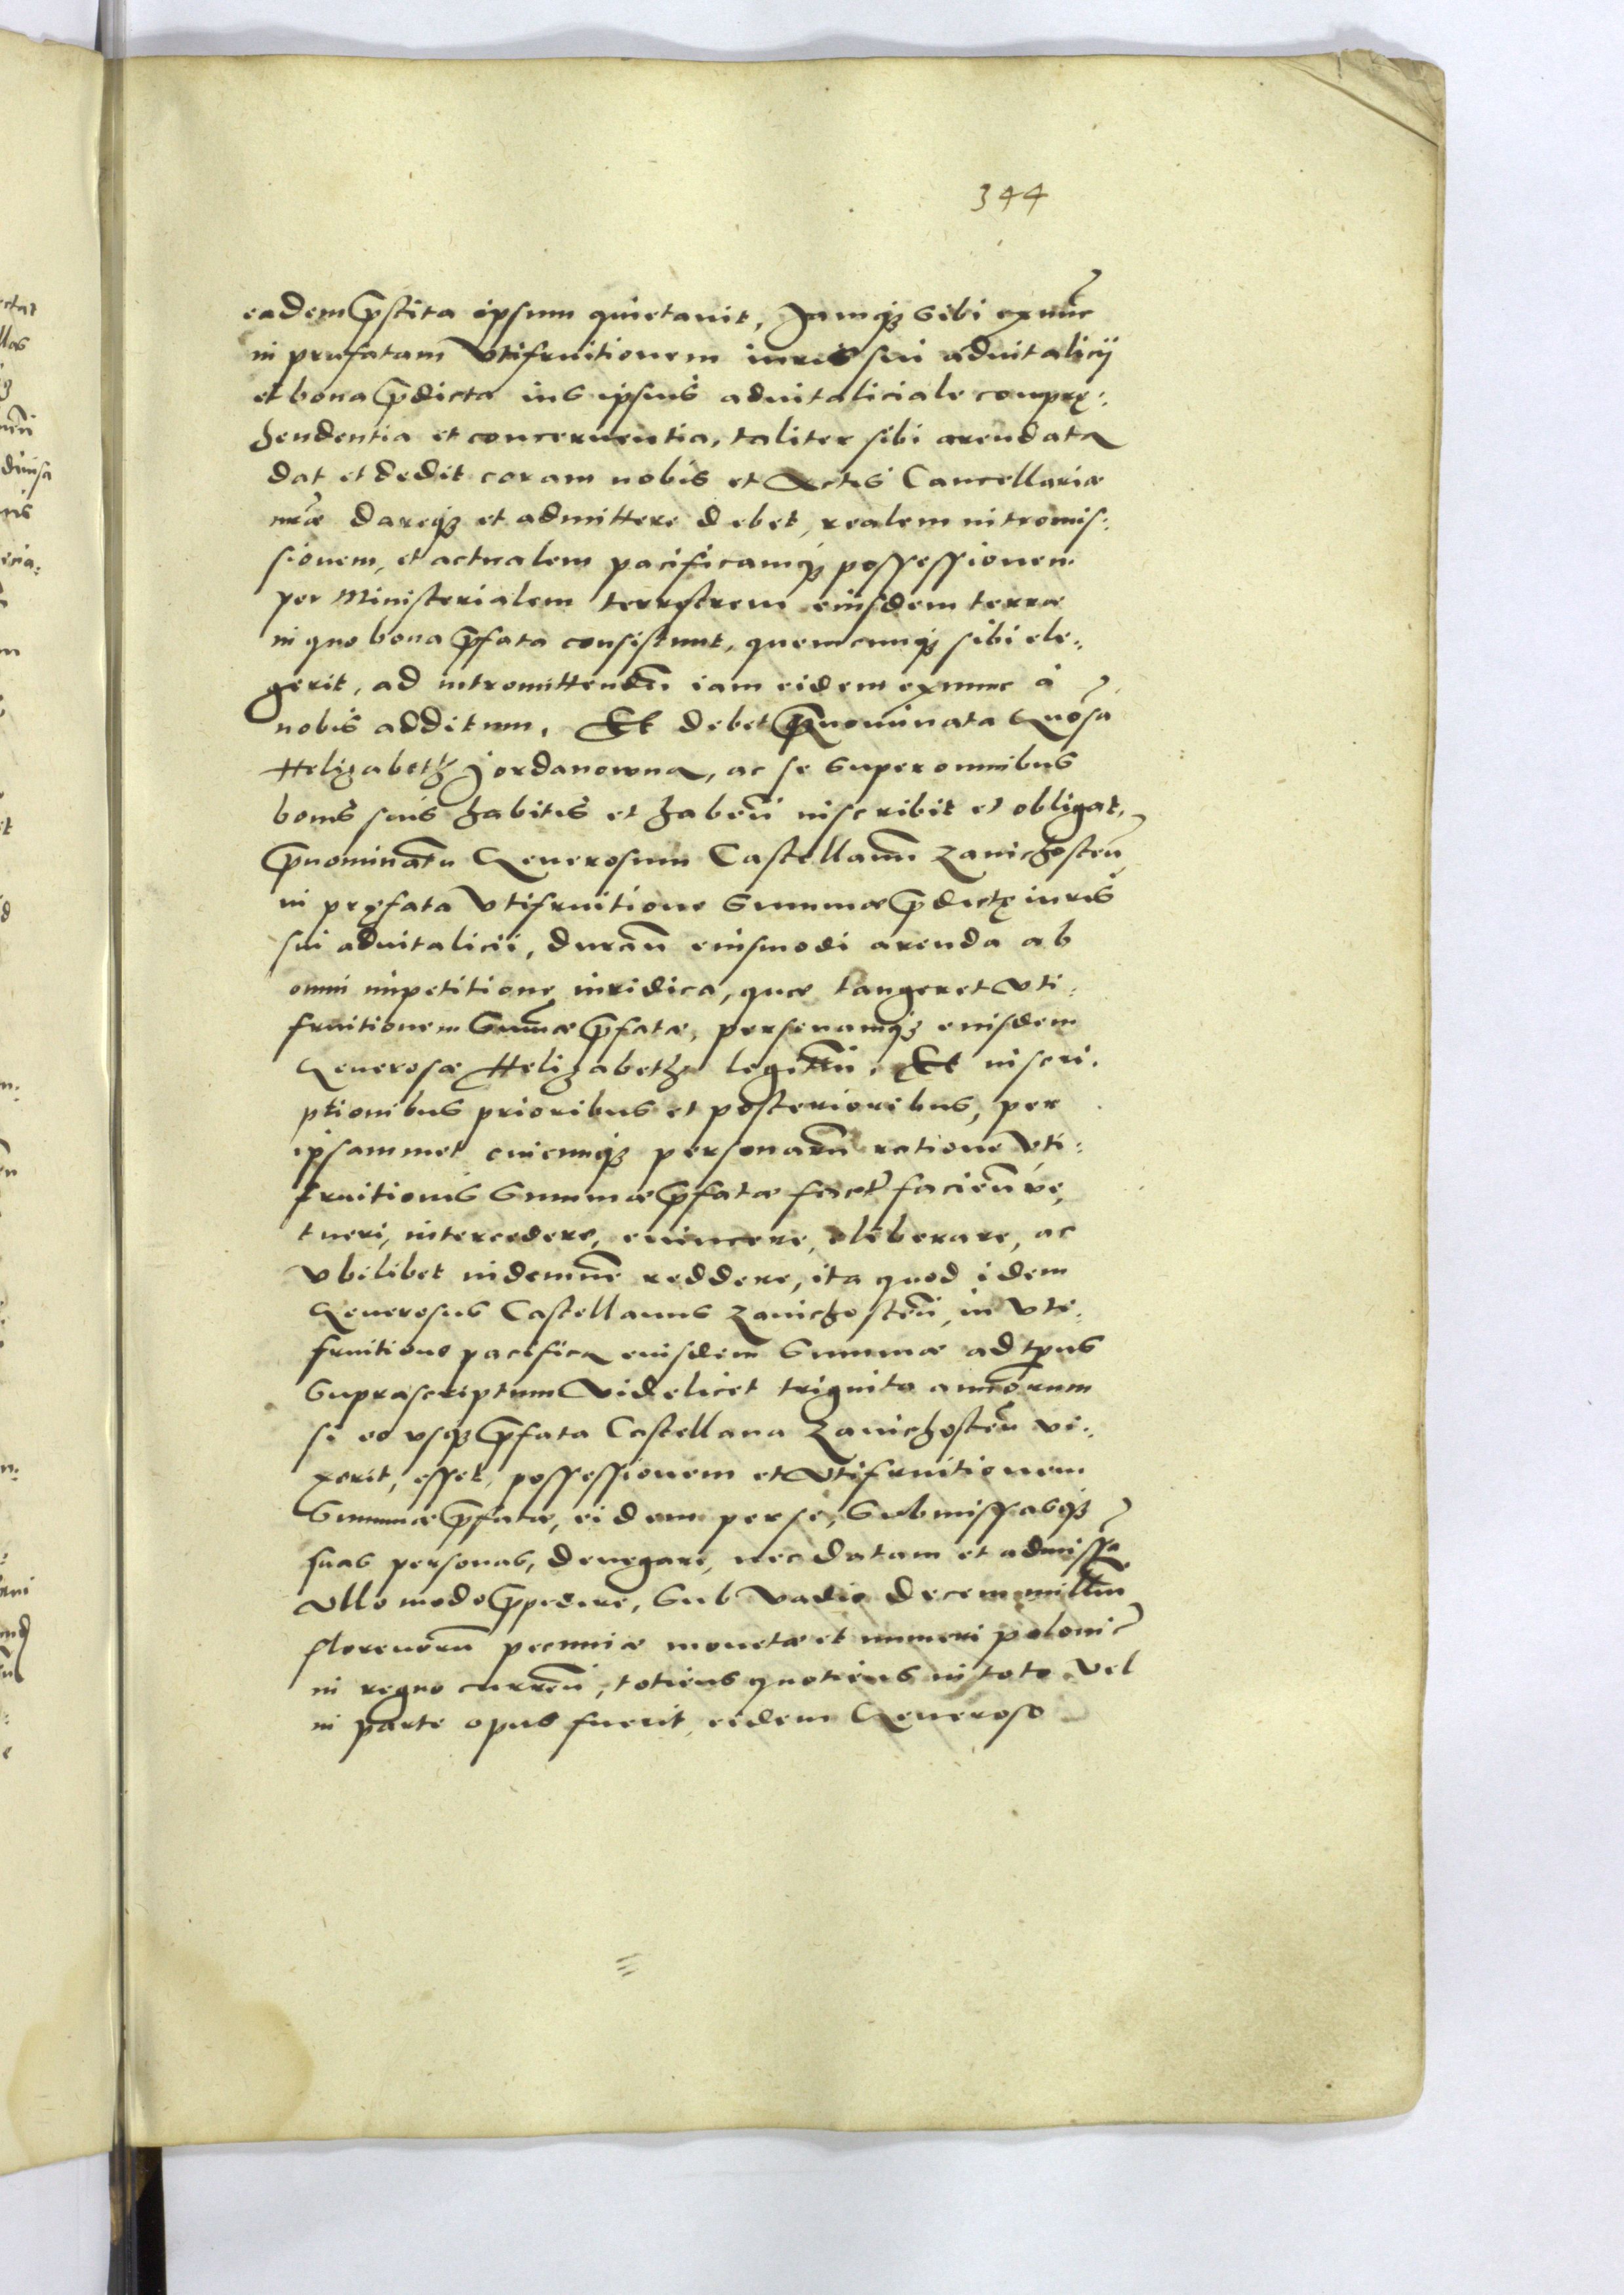 344
eadem p̃stita ipsum quietauit, Jamqʒ sibi exnũc
in prefatam Vtifruitionem iuris sui aduitalicij
et bona p̃dicta ius ipsius aduitaliciale compræ:
hendentia et concernentia, taliter sibi arendata
dat et dedit coram nobis et Actis Cancellariæ
nr̃æ dareqʒ et admittere debet, realem intromis:
sionem, et actualem pacificamqʒ possessionem
per Ministerialem terrestrem eiusdem terræ
in quo bona p̃fata consistunt, quemcunqʒ sibi ele:
gerit, ad intromittendũ iam eidem exnunc à
nobis additum. Et debet p̃nominata Gñosa
Helizabeth Jordanowna, ac se super omnibus
bonis suis habitis et habeñ inscribit et obligat,
p̃nominatũ Generosum Castellanũ Zawichosteñ
in præfata Vtifruitione Summæ p̃dictę iuris
sui aduitalicii, durañ eiusmodi arenda ab
omni impetitione iuridica, quæ tangeret Vti:
fruitionem Sum̃æ p̃fatæ, personamqʒ eiusdem
Generosæ Helizabethæ legittiñ. Et inscri:
ptionibus prioribus et posterioribus, per
ipsammet cuicunqʒ personarũ ratione Vti:
fruitionis Summæ p̃fatæ fact̃ facieñ ve,
tueri, intercedere, euincere, eliberare, ac
Vbilibet indemnẽ reddere, ita quod idem
Generosus Castellanus Zawichosteñ, in Vti:
fruitione pacifica eiusdem Summæ ad tp̃us
Suprascriptum Videlicet triginta annorum
si eo vsqʒ p̃fata Castellana Zawichosteñ vi:
xerit, esset, possessionem et Vtifruitionem
Summæ p̃fatæ, eidem per se, Submissasqʒ
suas personas, denegare, nec datam et admissã
Vllo modo p̃pedire, Sub Vadio decem milliũ
florenorũ pecuniæ monetæ et numeri polonic̃
in regno curreñ, totiens quotiens in toto Vel
in parte opus fuerit, eidem Generoso